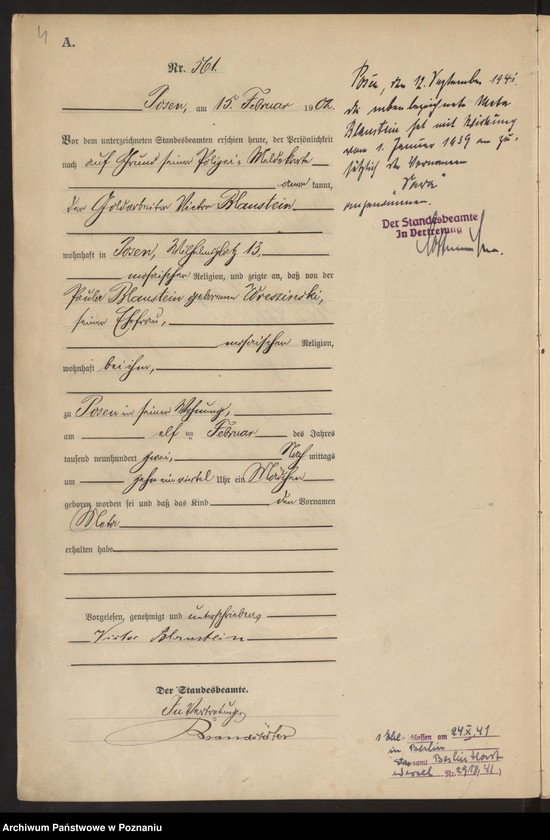 4
A.
Nr. 561.
Posen, am 15. Februar 1902.
Vor dem unterzeichneten Standesbeamten erschien heute, der Persönlichkeit
nach auf Grund seiner Polizei-Meldekarte
kannt,
der Goldarbeiter Victor Blaustein
wohnhaft in Posen, Wilhelmsplatz 13,
mosaischer Religion, und zeigte an, daß von der
Paula Blaustein geborenen Wreszinski,
seiner Ehefrau,
mosaischer Religion,
wohnhaft bei ihm,
zu Posen in seiner Wohnung,
am elf ten Februar des Jahres
tausend neunhundert zwei, Nach mittags
um zehn ein viertel Uhr ein Mädchen
geboren worden sei und daß das Kind den Vornamen
Meta
erhalten habe
Vorgelesen, genehmigt und unterschrieben
Victor Blaustein
Der Standesbeamte.
In Vertretung
Brandstäter
Posen, den 12. September 1941
die nebenbezeichnete Meta
Blaustein hat mit Wirkung
vom 1. Januar 1939 an zu-
sätzlich den Vornamen
"Sara"
angenommen.
Der Standesbeamte
In Vertretung
1 Ehe schlossen am 24.X.41
in Berlin
Stesamt Berlin Horst
Wessel Nr. 291/41)
Archiwum Państwowe w Poznaniu